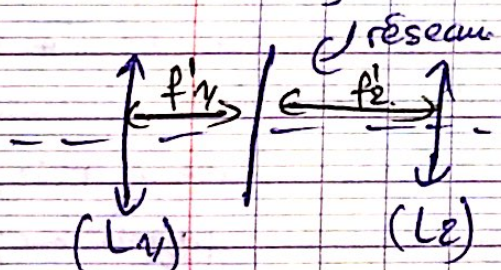 réseau
f'1
f'2
(L1)
(L2)